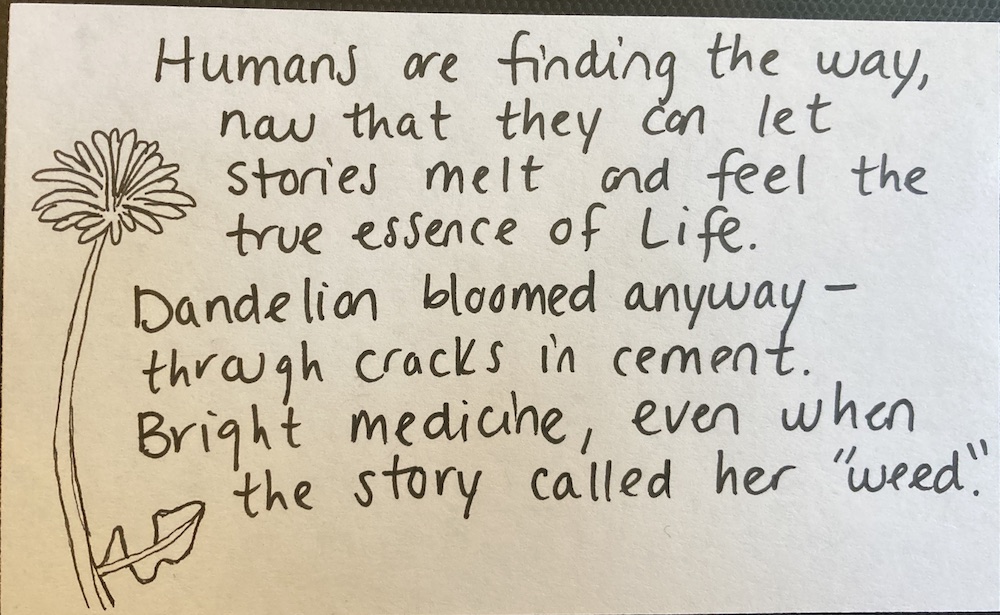 Humans are finding the way,
now that they can let
stories melt and feel the
true essence of Life.
Dandelion bloomed anyway –
through cracks in cement.
Bright medicine, even when
the story called her "weed".